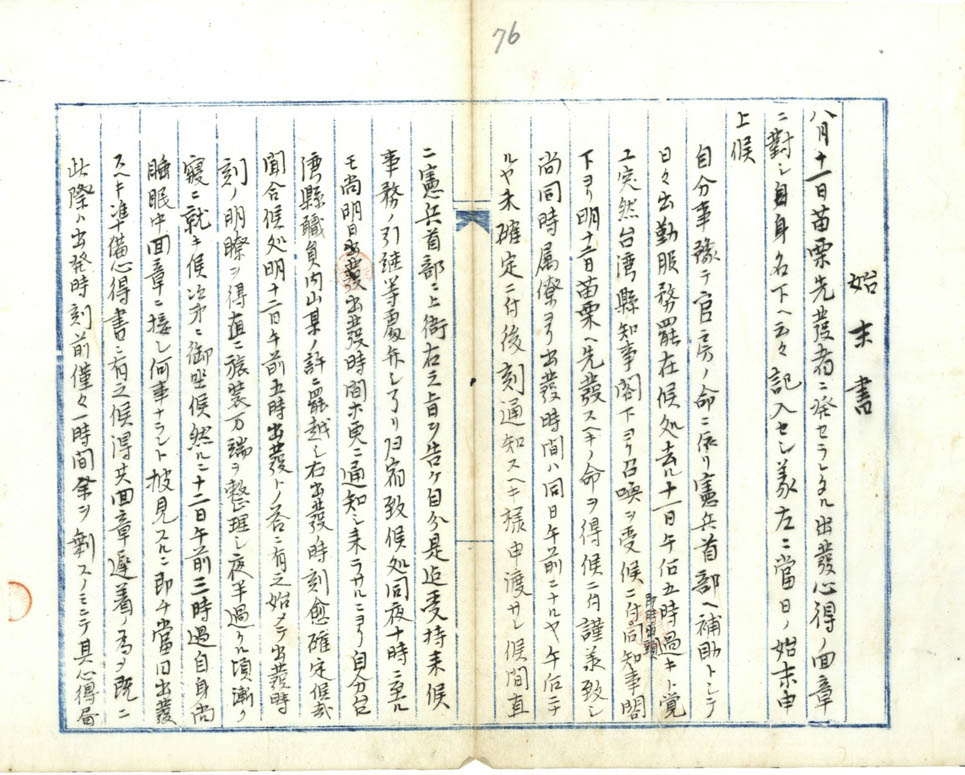 76
始末書
八月十一日苗栗先發者ニ発セラレタル出發心得ノ回章
ニ對シ自身名下ヘ云々記入セシ義左ニ當日ノ始末申
上候
自分事豫テ官房ノ命ニ依リ憲兵首部ヘ補助トシテ
日々出勤服務罷在候処去ル十一日午后五時過キト覚
エ突然台湾縣知事閣下ヨリ召喚ヲ受候ニ付即時出頭同知事閣
下ヨリ明十二日苗栗ヘ先發スヘキノ命ヲ得候ニ付謹承致シ
尚同時属僚ヨリ出發時間ハ同日午前ニナルヤ午后ニナ
ルヤ未確定ニ付後刻通知スヘキ様申渡サレ候間直
ニ憲兵首部ニ上衙右之上旨ヲ告ケ自分是迄受持来候
事務ノ引継等處弁シ了リ归宿致候処同夜十時ニ至ル
モ尚明日出發時間ホ更ニ通知シ来ラサルニヨリ自分
湾縣職員内山某ノ許ニ罷越シ右出發ノ時刻愈確定候哉
聞合候処明十二日午前五時出發トノ答ニ有之始メテ出發時
刻ノ明瞭ヲ得直ニ旅装万端ヲ整理シ夜半過クル頃漸ク
寝ニ就キ候次第ニ御坐候然ルニ十二日午前三時過自身尚
睡眠中回章ニ接シ何事ナラント披見スルニ即チ當日出發
スヘキ準備心得書ニ有之候得共回章遅着ノ為ヲ既ニ
此際ハ出發時刻前僅々一時間余ヲ剰スノミニテ其心得